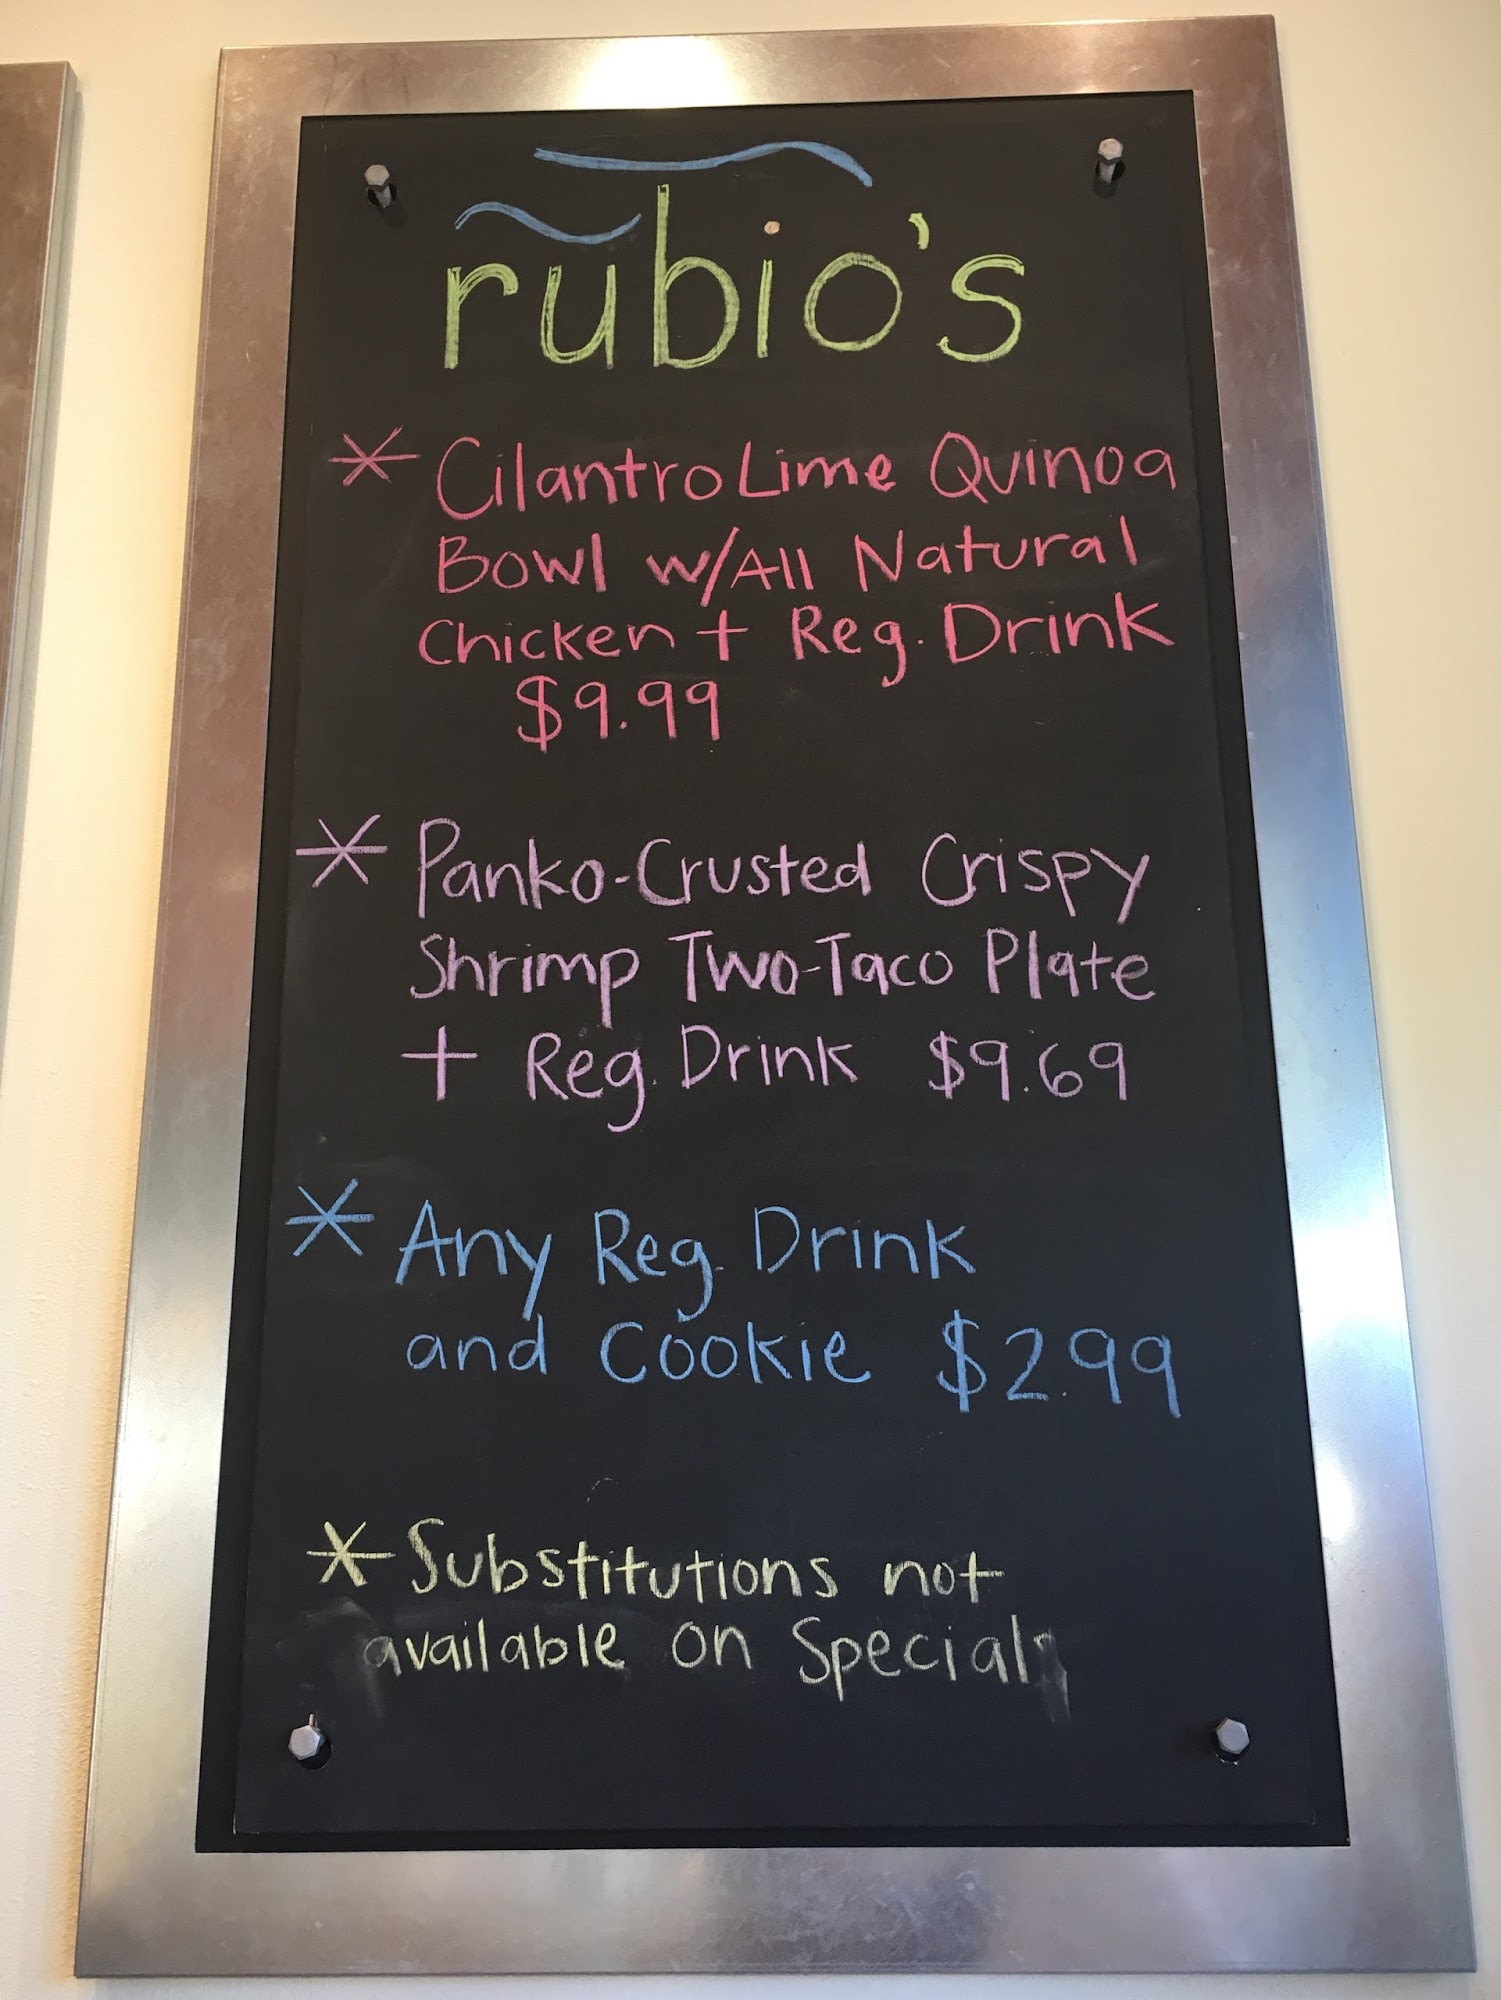 rubio's
* Cilantro Lime Quinoa
Bowl w/All Natural
Chicken + Reg. Drink
$9.99
* Panko-Crusted Crispy
Shrimp Two-Taco Plate
+ Reg. Drink $9.69
* Any Reg. Drink
and Cookie $2.99
* Substitutions not
available on Specials